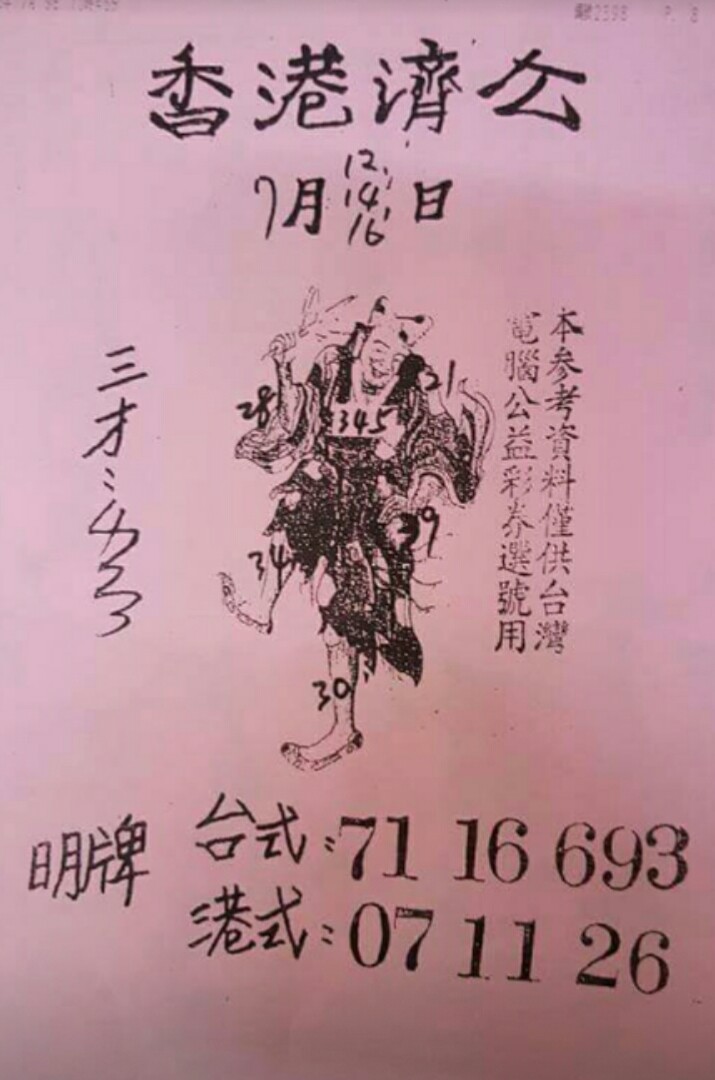 香港濟公
7月12,14,16日
本參考資料僅供台灣
電腦公益彩券選號用
三才:
28
21
345
39
34
30
明牌
台式:71 16 693
港式:07 11 26